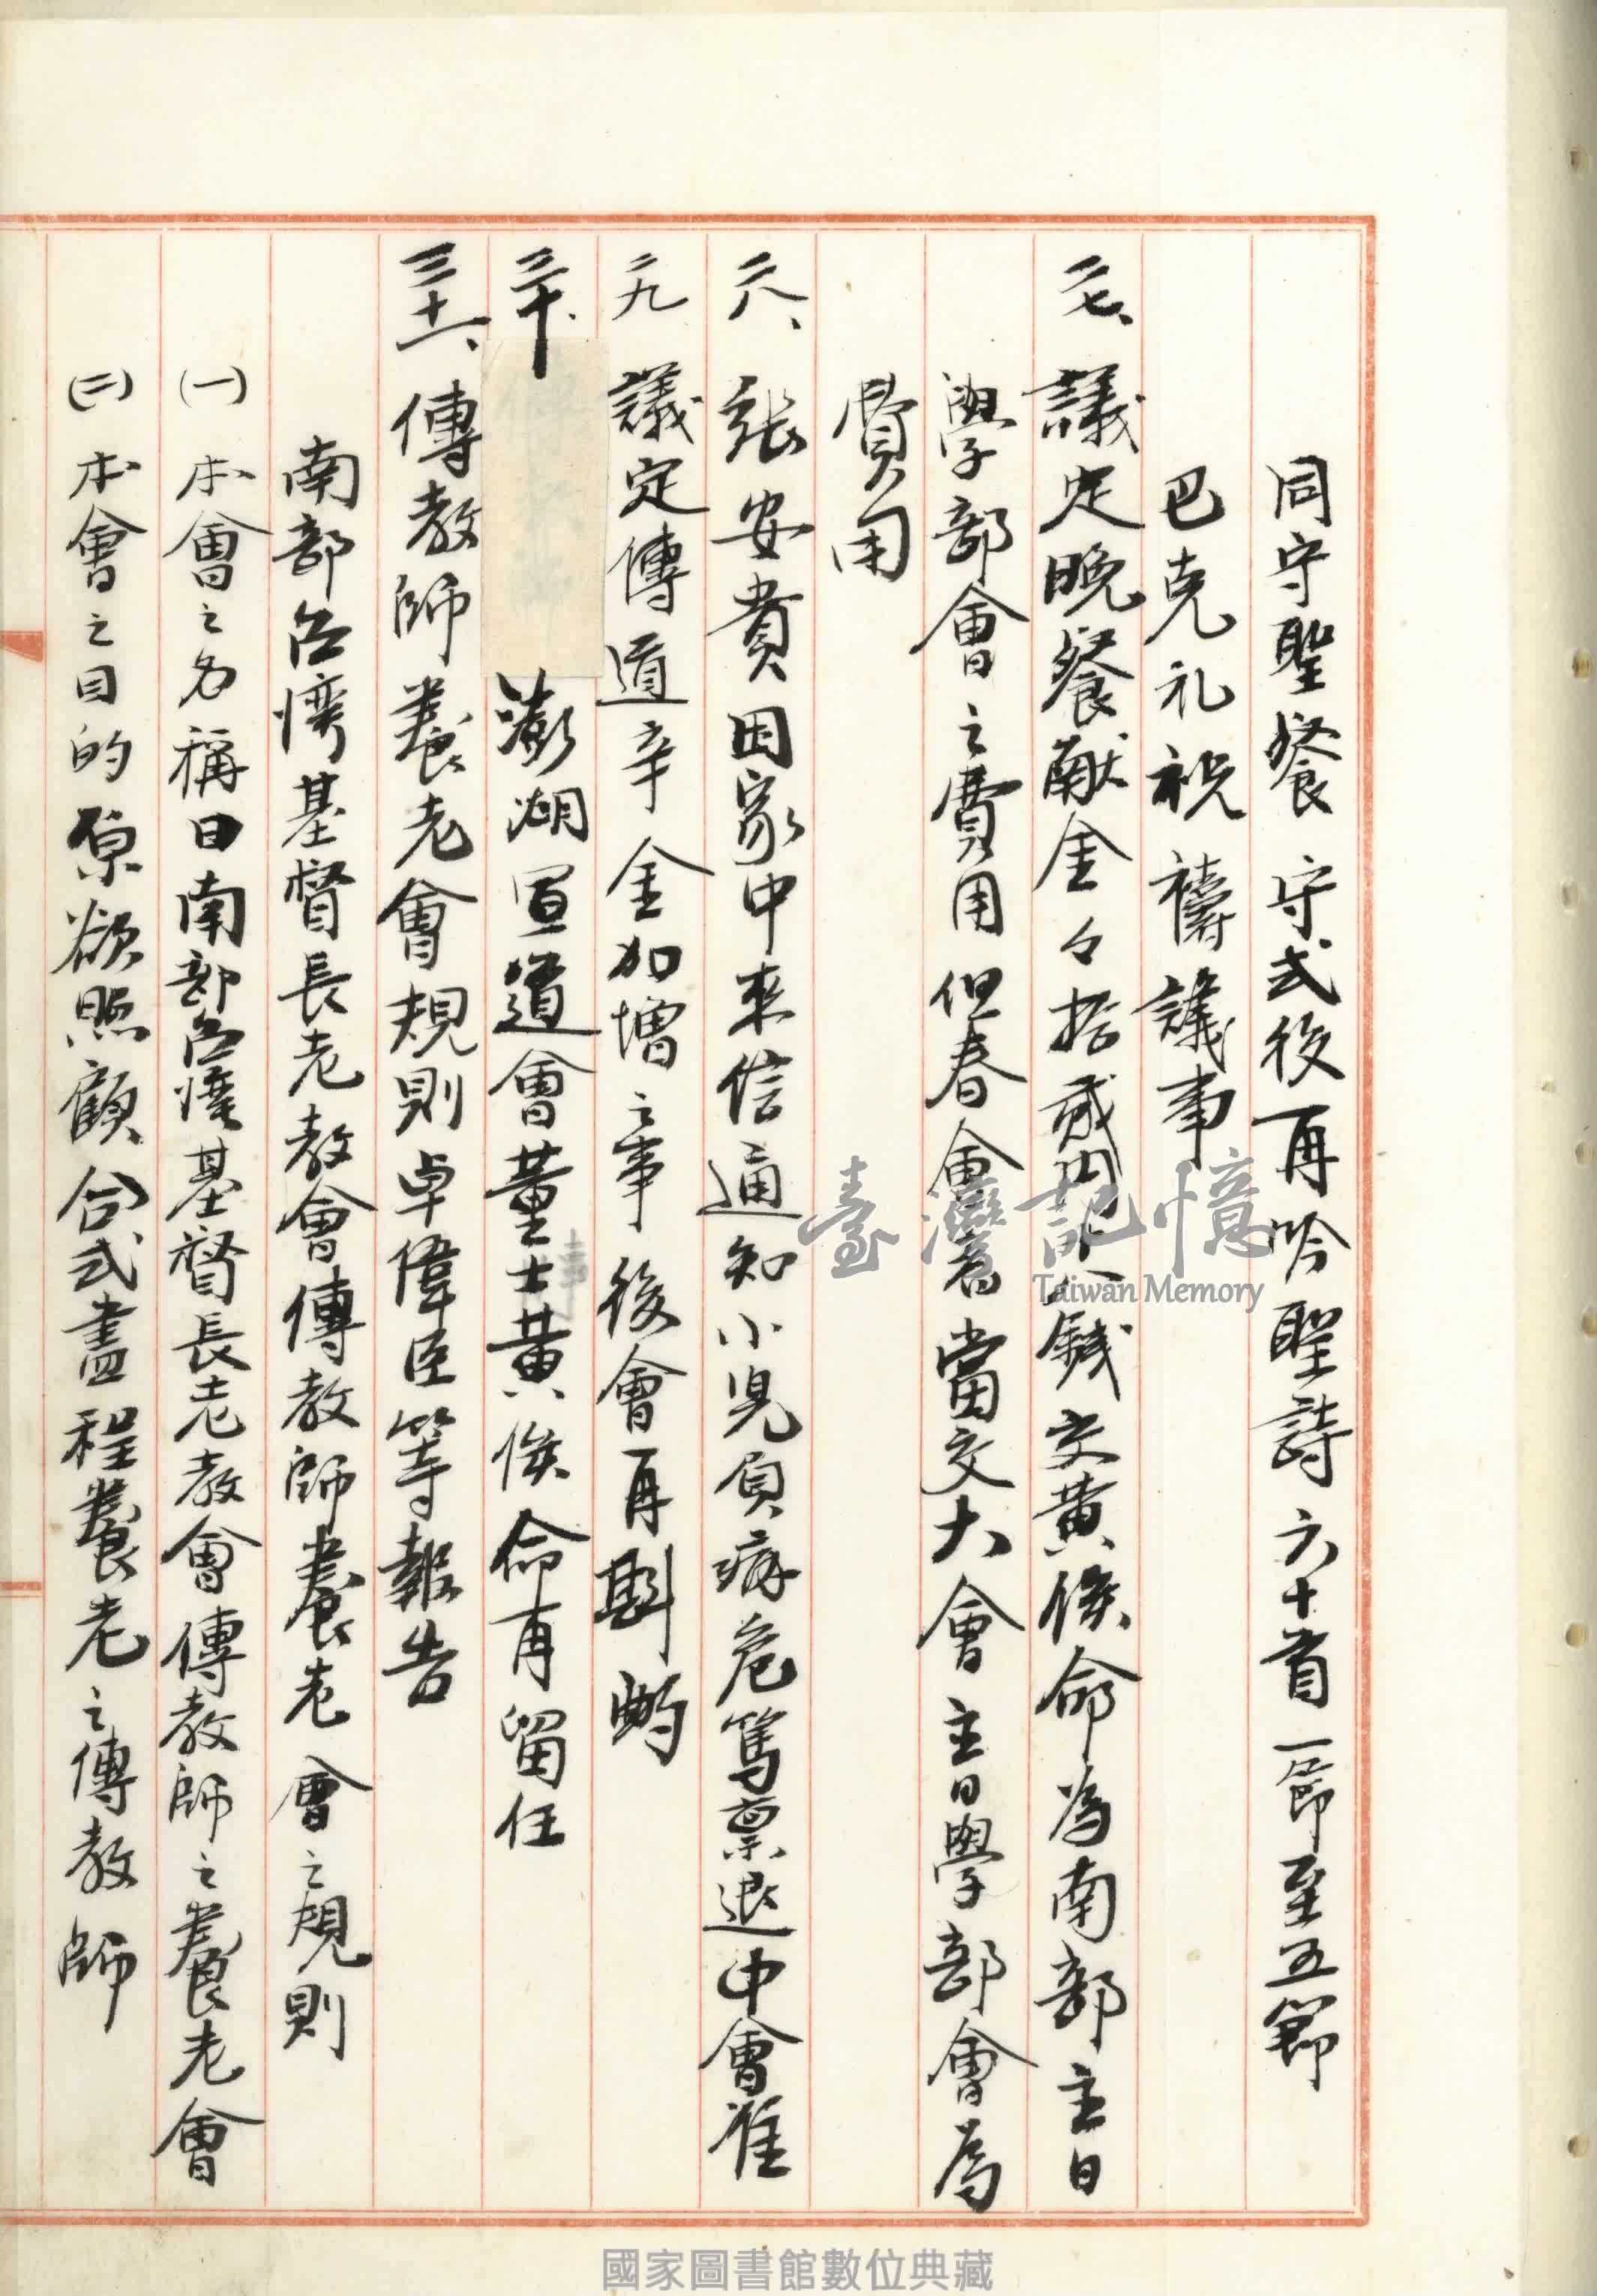 同守聖餐守式後再吟聖詩六十首一節至五節
巴克礼祝禱議事
二七、議定晚餐献金々拾貳円八銭交黄俟命為南部主日
學部會之費用但春會者當交大會主日學部會為
費用
二八、張安貴因家中來信通知小児負病危篤禀退中會准
二九 議定傳道辛金加增之事後會再斟酌
三十、澎湖宣道會董士黄俟命再留任
三十一、傳教師養老會規則卓偉臣等報告
南部台湾基督長老教會傳教師養老會之規則
(一)本會之名稱曰南部台湾基督長老教會傳教師之養老會
(二)本會之目的原欲照顧合式盡程養老之傳教師
臺灣記憶
Taiwan Memory
國家圖書館數位典藏